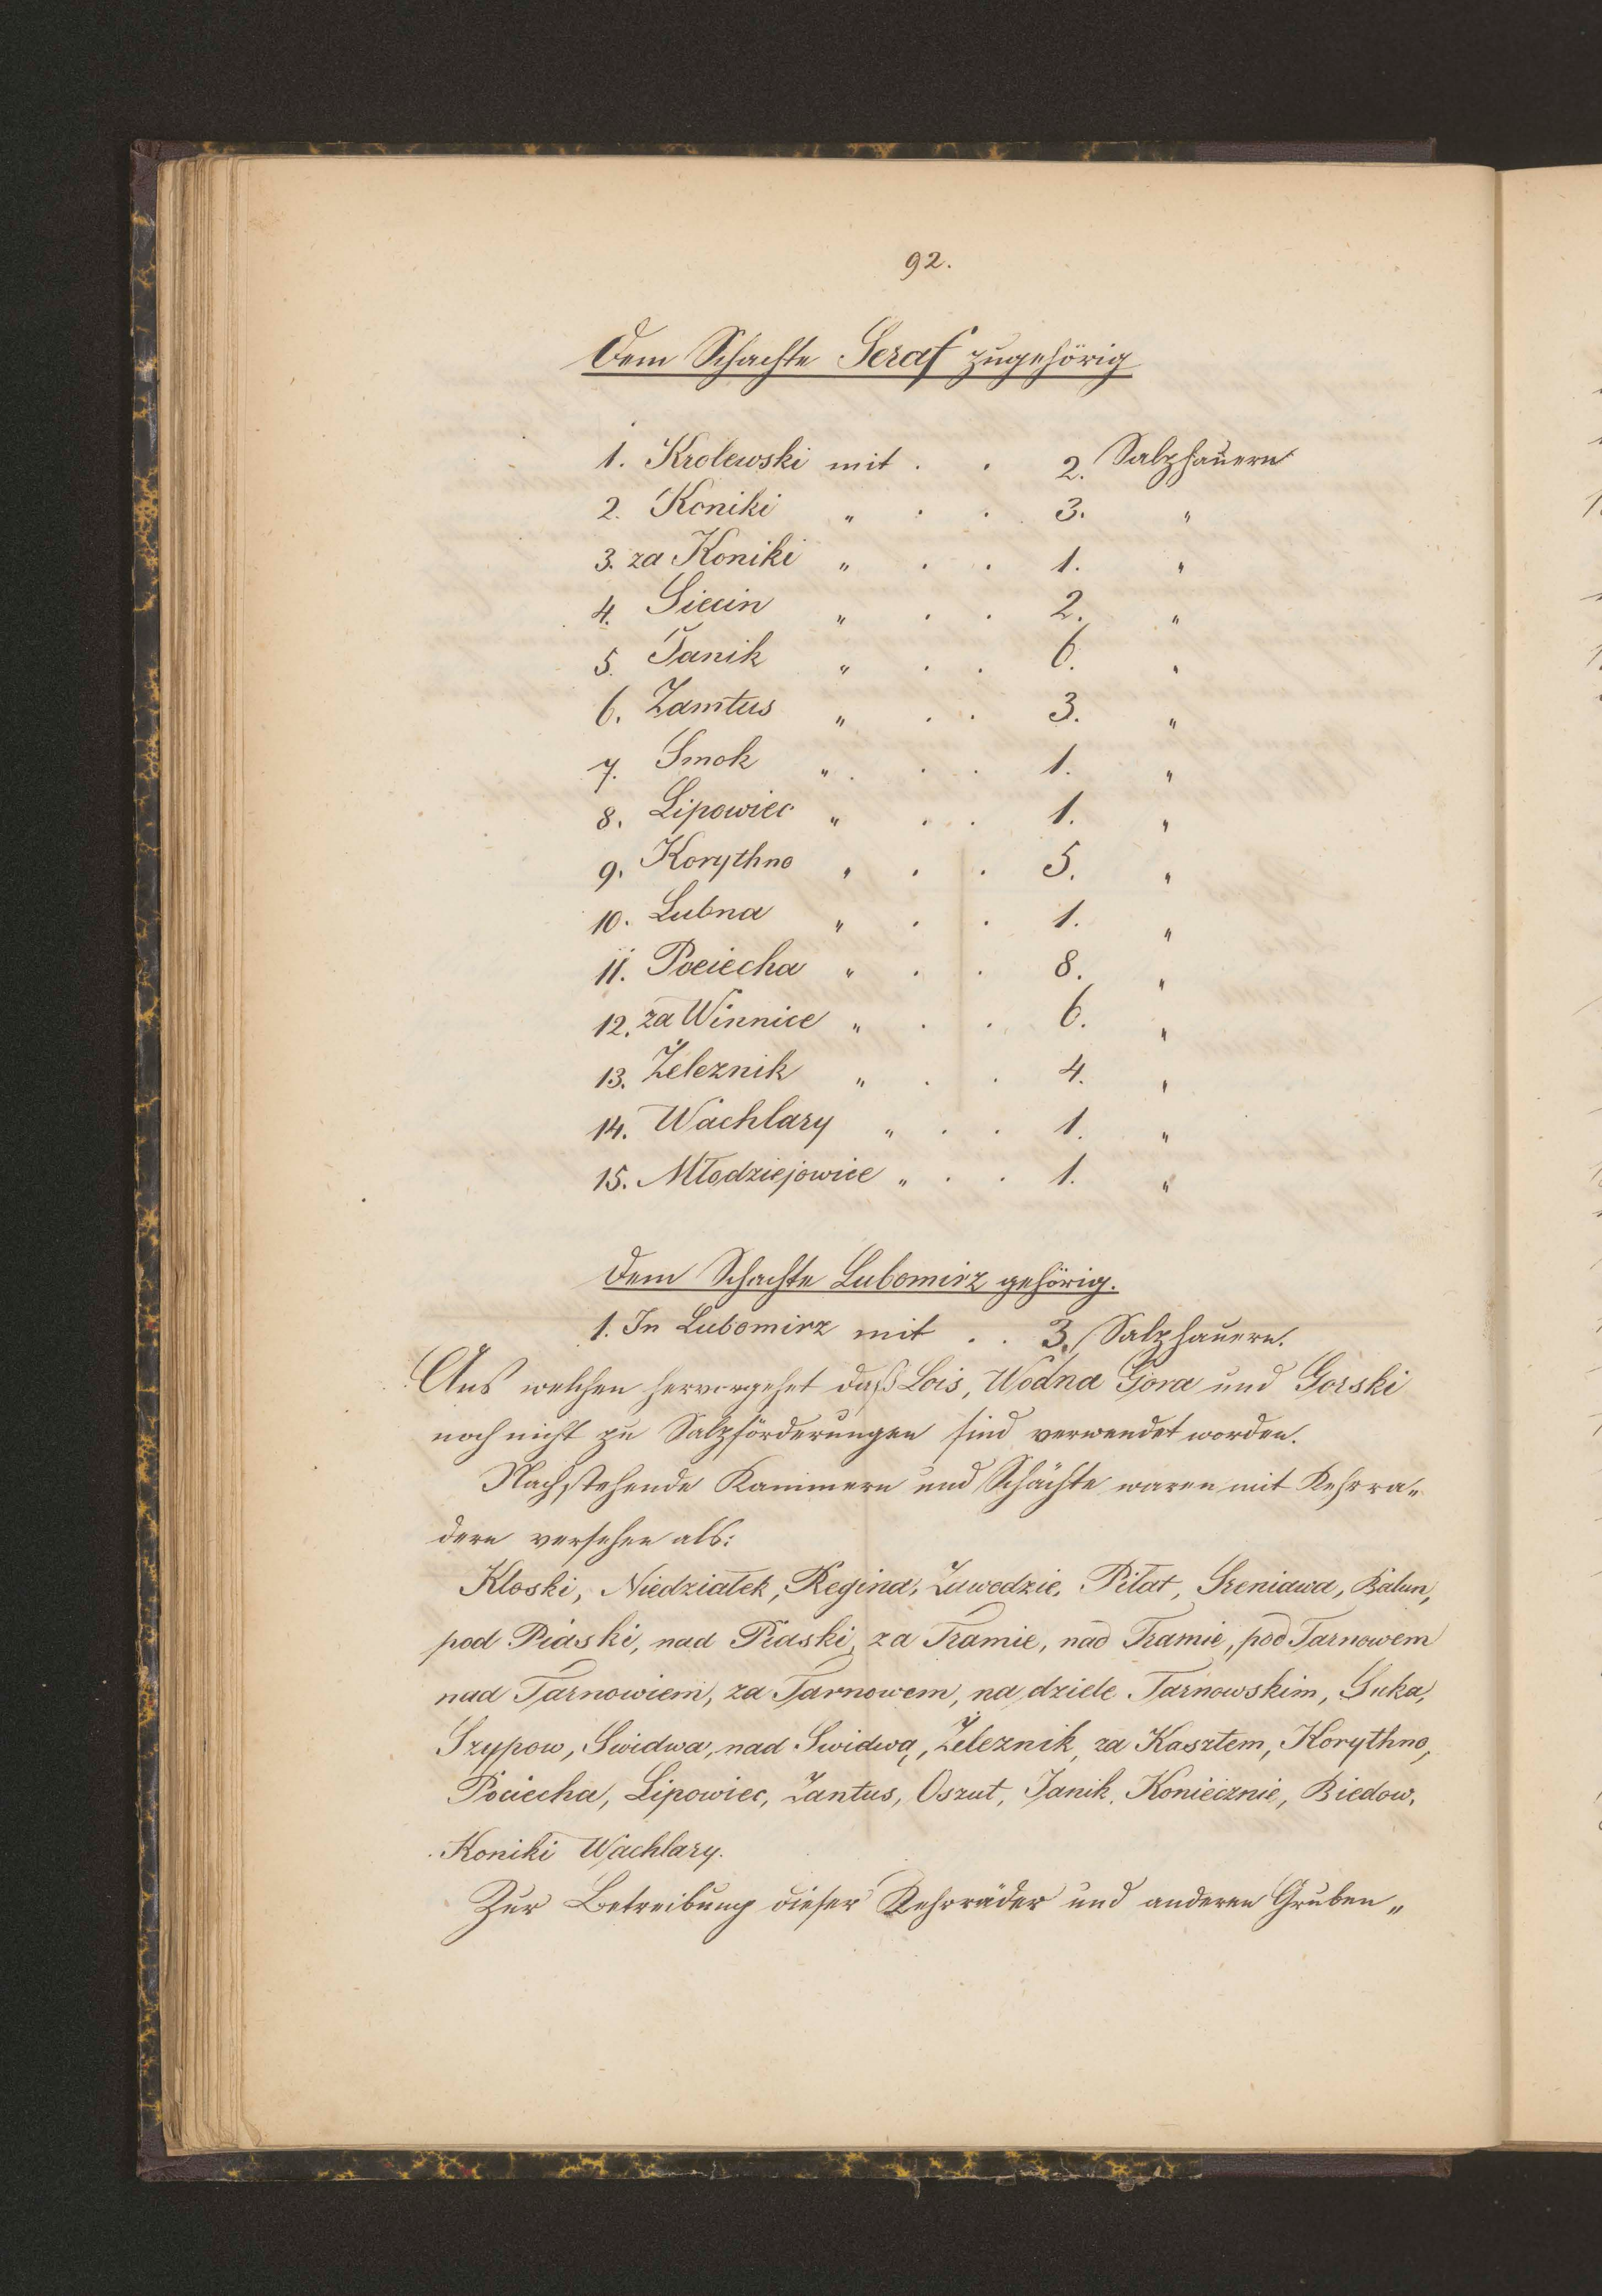 92.
Dem Schachte Seraf zugehörig
1. Krolewski mit . . 2. Salzhauern
2. Koniki " . . 3. "
3. za Koniki " . . 1. "
4. Siecin " . . 2. "
5. Janik " . . 6. "
6. Zamtus " . . 3. "
7. Smok " . . 1. "
8. Lipowiec " . . 1. "
9. Korythno " . . 5. "
10. Lubna " . . 1. "
11. Pociecha " . . 8. "
12. za Winnice " . . 6. "
13. Żeleznik " . . 4. "
14. Wachlary " . . 1. "
15. Młodziejowice " . . 1. "
Dem Schachte Lubomirz gehörig.
1. In Lubomirz mit . . 3. Salzhauern.
Aus welchen hervorgehet daß Lois, Wodna Gora und Gorski
noch nicht zu Salzförderungen sind verwendet worden.
Nachstehende Kammern und Schächte waren mit Kehrra„
dern versehen als:
Kloski, Niedziałek, Regina, Zawodzie, Piłat, Sreniawa, Bałun,
pod Piaski, nad Piaski, za Tramie, nad Tramie, pod Tarnowem
nad Tarnowiem, za Tarnowem, na dziele Tarnowskim, Suka,
Szypow, Swidwa, nad Swidwą, Żeleznik, za Kasztem, Korythno,
Pociecha, Lipowiec, Zantus, Oszut, Janik, Koniecznie, Biedow,
Koniki Wachlary.
Zur Betreibung dieser Kehrräder und anderen Gruben„